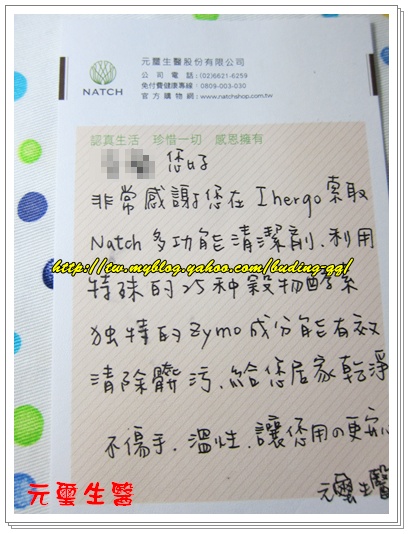 元璽生醫股份有限公司
公司電話:(02)6621-6259
免付費健康專線:0809-003-030
官方購物網:www.natchshop.com.tw
NATCH
認真生活 珍惜一切 感恩擁有
您好
非常感謝您在Ihergo索取
Natch多功能清潔劑、利用
http://tw.myblog.yahoo.com/buding-gg/
特殊的25种穀物酵素
独特的Zymo成分能有效
清除髒污、給您居家乾淨
不傷手、溫性、讓您用の更安心
元璽生醫
元璽生醫